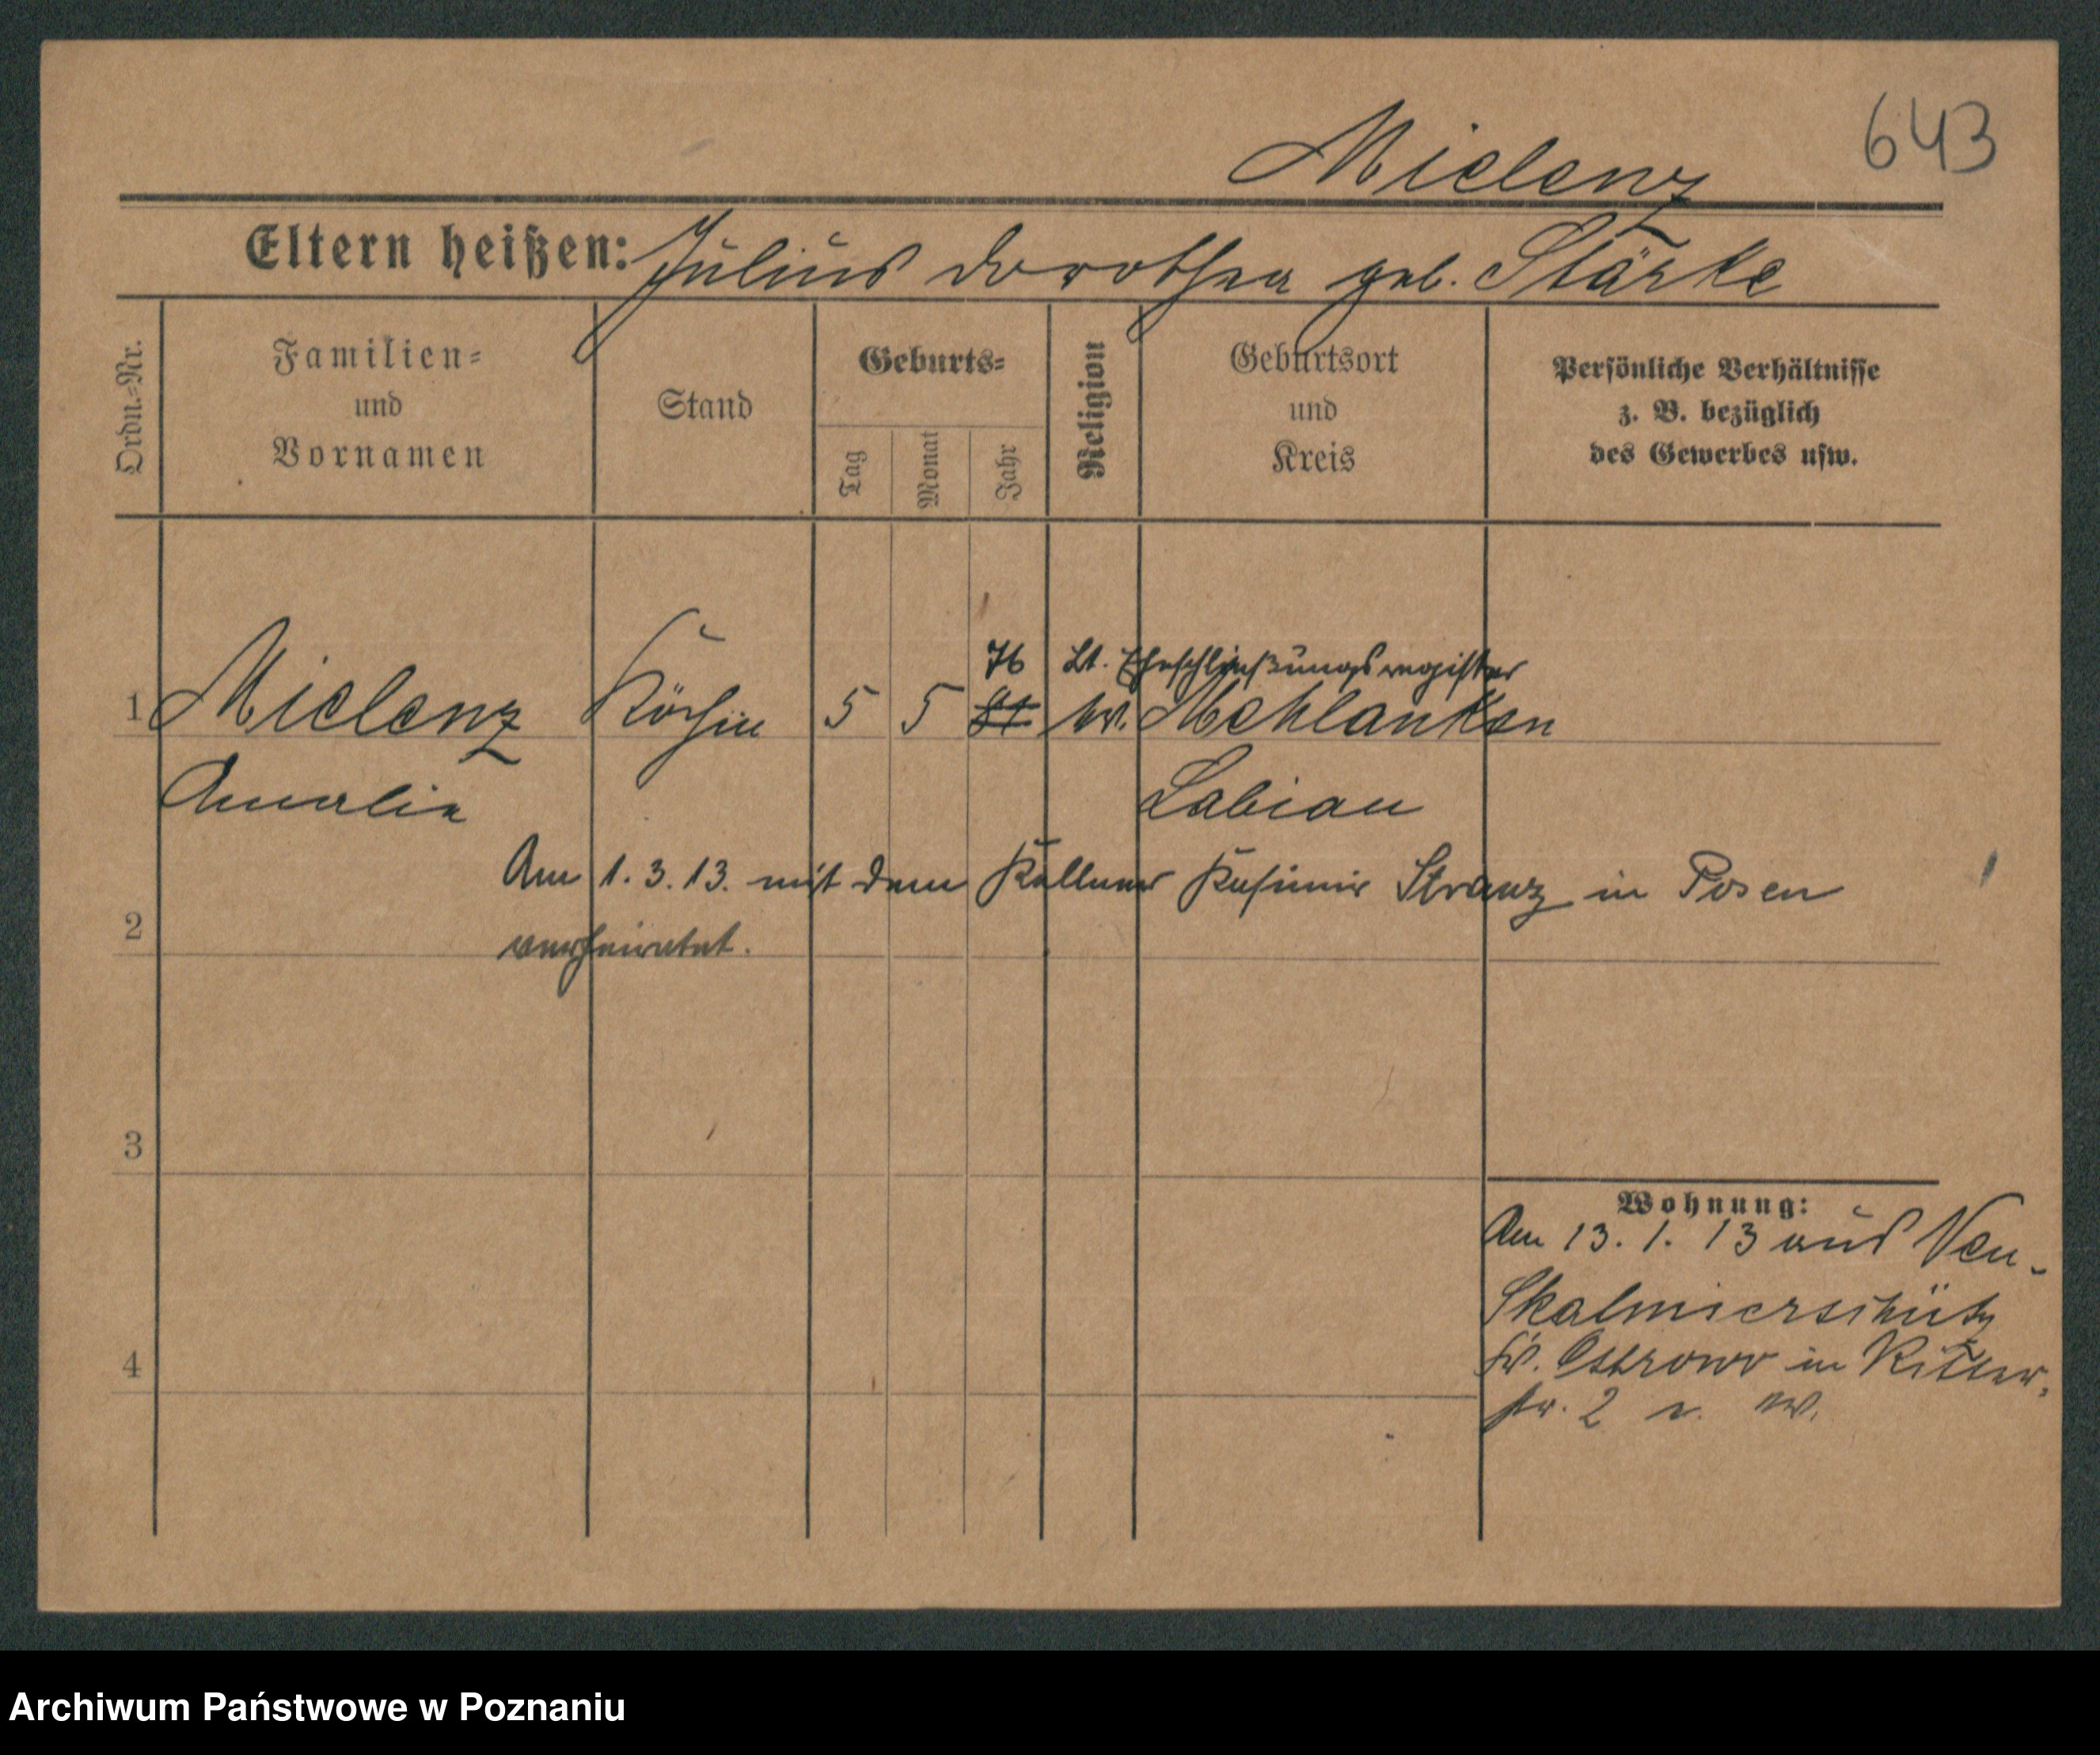 643
Mielenz
Eltern heißen: Julius Dorothea geb. Stärke
Ordn.=Nr.
Familien=
und
Vornamen
Stand
Geburts=
Tag
Monat
Jahr
Religion
Geburtsort
und
Kreis
Persönliche Verhältnisse
z. B. bezüglich
des Gewerbes usw.
76 Lt. Eheschließungsregister
1 Mielenz Köchin 5 5 81 ev. Mehlauken
Amalie Labiau
Am 1. 3. 13. mit dem Kellner Kasimir Stranz in Posen
2 verheiratet.
3
4
Wohnung:
Am 13. 1. 13 aus Neu-
Skalmierschütz
Kr. Ostrowo in Ritter-
str. 2
Archiwum Państwowe w Poznaniu